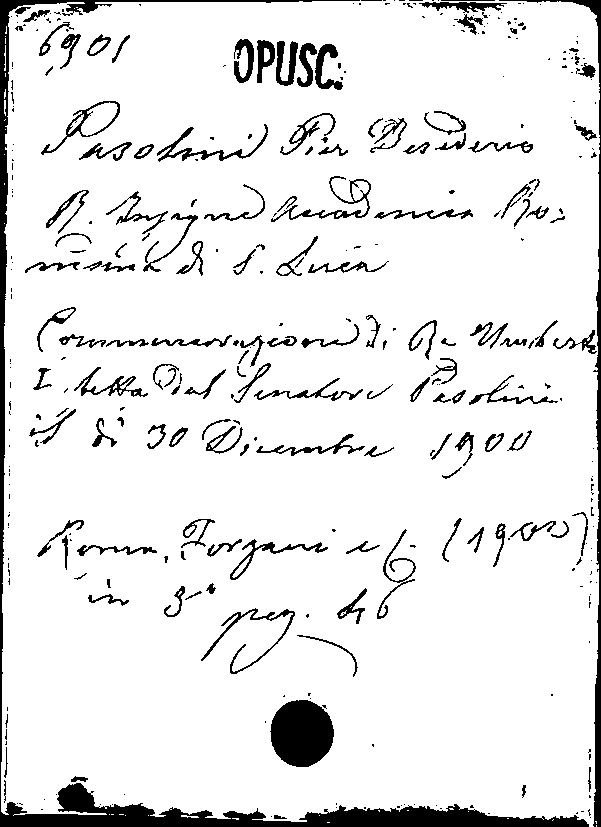 6901
OPUSC.
Pasolini Pier Desiderio
R. Insigne Accademia Ro=
mana di S. Luca
Commemorazione di Re Umberto
I letta dal Senatore Pasolini
il dì 30 Dicembre 1900
Roma, Forzani e C. (1900)
in 8° pag. 46